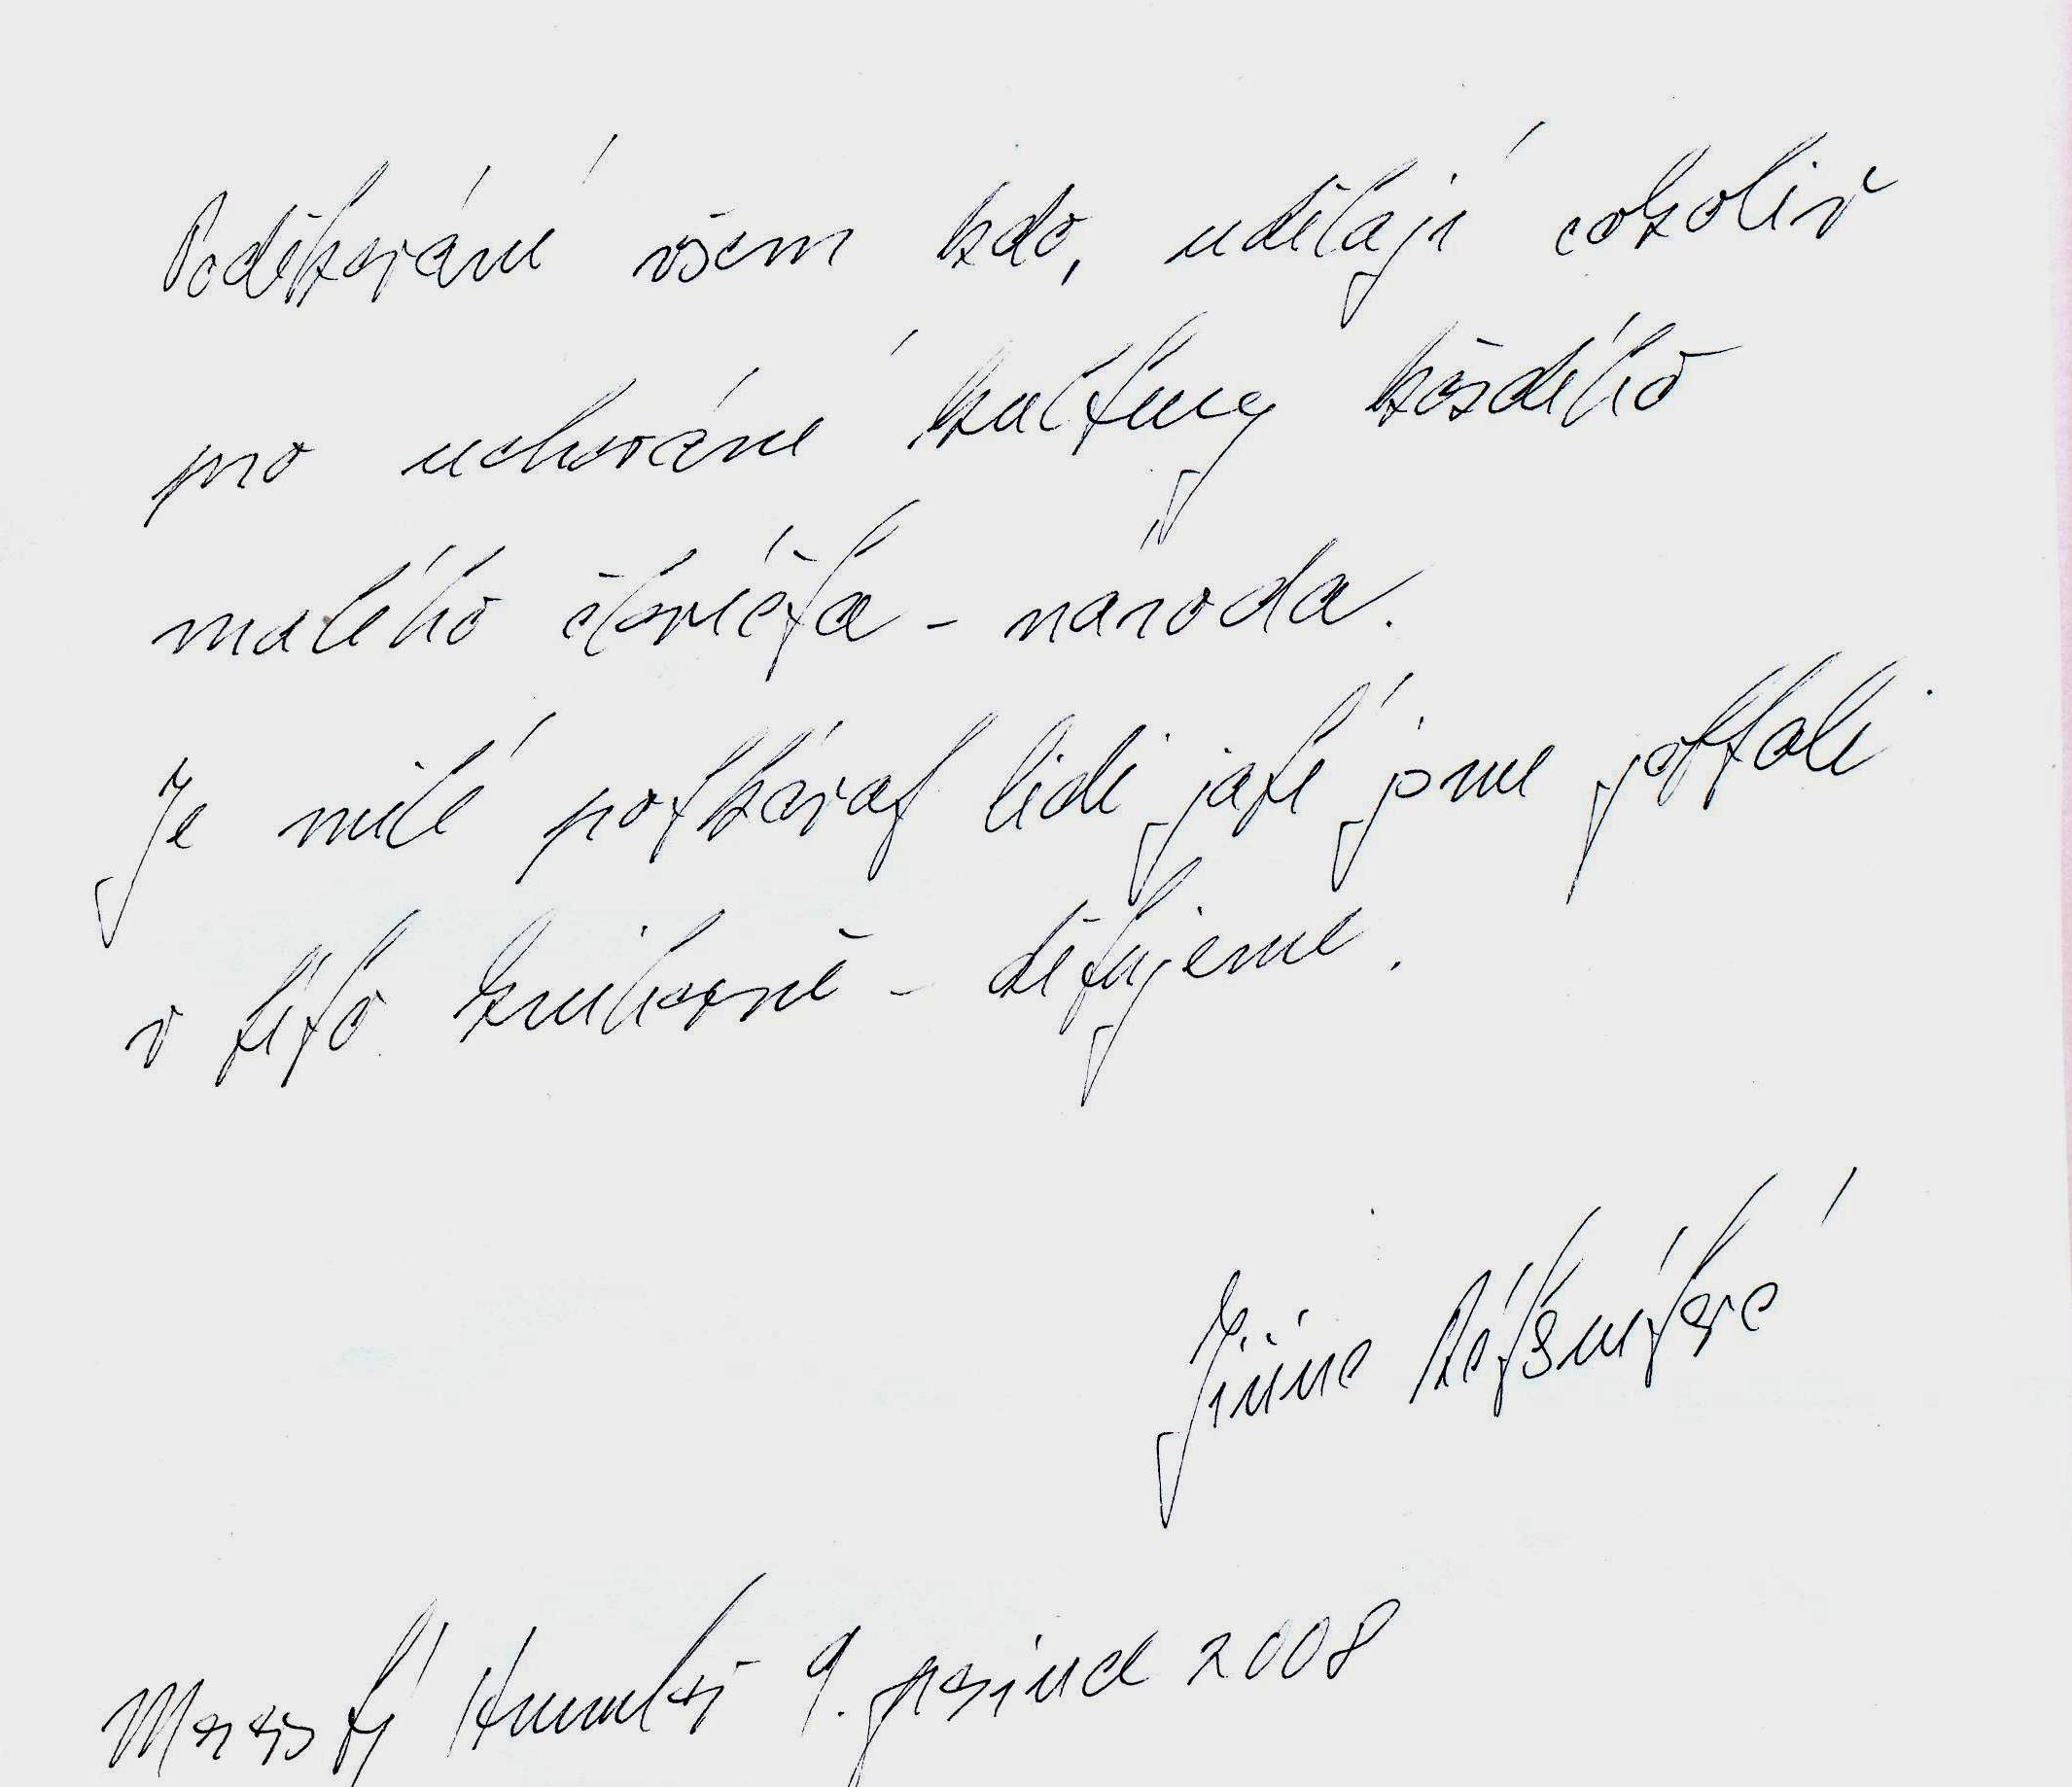 Poděkování všem kdo, udělají cokoliv
pro uchování kultury každého
malého člověčka - národa.
Je milé potkávat lidi jaké jsme potkali
v této knihovně - děkujeme.
Jiřina
Moravský Krumlov 9. prosince 2008